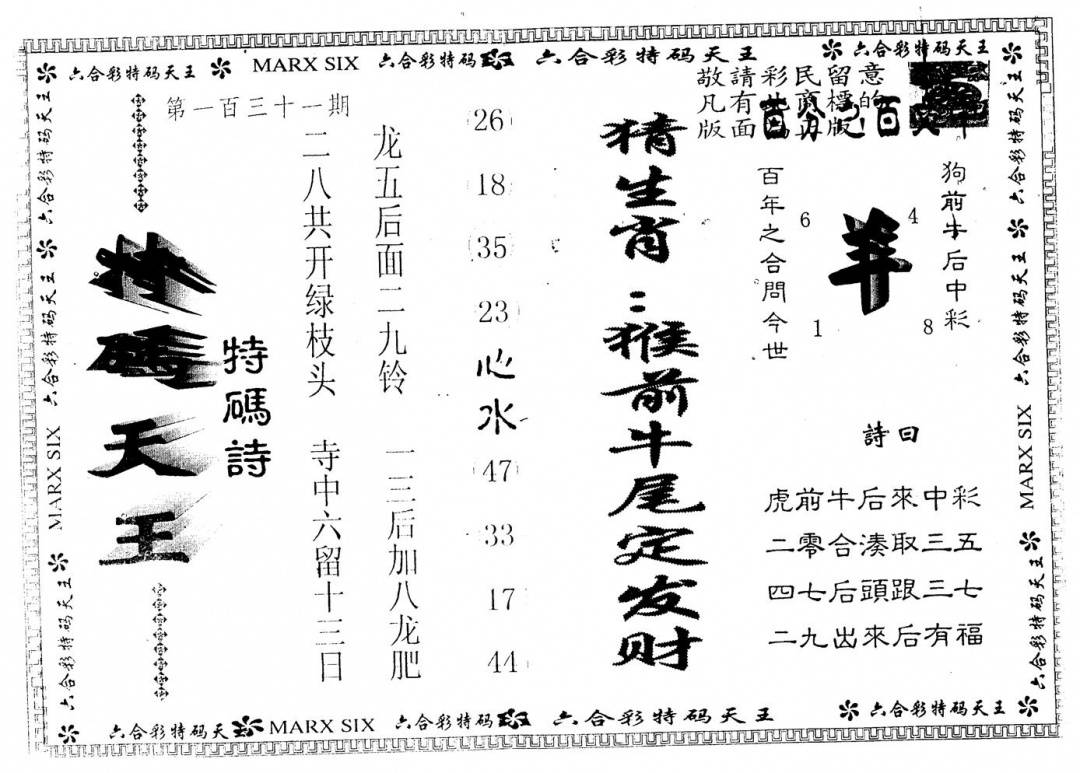 六合彩特码天王 MARX SIX 六合彩特码 六合彩特码天王 六合彩特码天王
敬請彩民留意
凡有
的
版面
版
狗前牛后中彩
羊
6
4
1
8
百年之合問今世
詩曰
虎前牛后來中彩
二零合湊取三五
四七后頭跟三七
二九出來后有福
猜生肖：猴前牛尾定发财
26
18
35
23
心水
47
33
17
44
龙五后面二九铃 一三后加八龙肥
二八共开绿枝头 寺中六留十三日
特碼詩
第一百三十一期
特碼天王
六合彩特码天王
六合彩特码天王
MARX SIX
六合彩特码天王
六合彩特码天王
六合彩特码天王
MARX SIX
六合彩特码天王
六合彩特码天 MARX SIX 六合彩特码 六合彩特码天王 六合彩特码天王